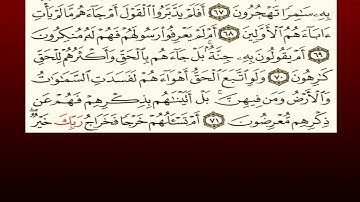 بِهِۦ سَٰمِرًا تَهْجُرُونَ ٦٧ أَفَلَمْ يَدَّبَّرُوا۟ ٱلْقَوْلَ أَمْ جَآءَهُم مَّا لَمْ يَأْتِ
ءَابَآءَهُمُ ٱلْأَوَّلِينَ ٦٨ أَمْ لَمْ يَعْرِفُوا۟ رَسُولَهُمْ فَهُمْ لَهُۥ مُنكِرُونَ
٦٩ أَمْ يَقُولُونَ بِهِۦ جِنَّةٌۢ بَلْ جَآءَهُم بِٱلْحَقِّ وَأَكْثَرُهُمْ لِلْحَقِّ
كَٰرِهُونَ ٧٠ وَلَوِ ٱتَّبَعَ ٱلْحَقُّ أَهْوَآءَهُمْ لَفَسَدَتِ ٱلسَّمَٰوَٰتُ
وَٱلْأَرْضُ وَمَن فِيهِنَّ ۚ بَلْ أَتَيْنَٰهُم بِذِكْرِهِمْ فَهُمْ عَن
ذِكْرِهِم مُّعْرِضُونَ ٧١ أَمْ تَسْـَٔلُهُمْ خَرْجًا فَخَرَاجُ رَبِّكَ خَيْرٌ ۖ